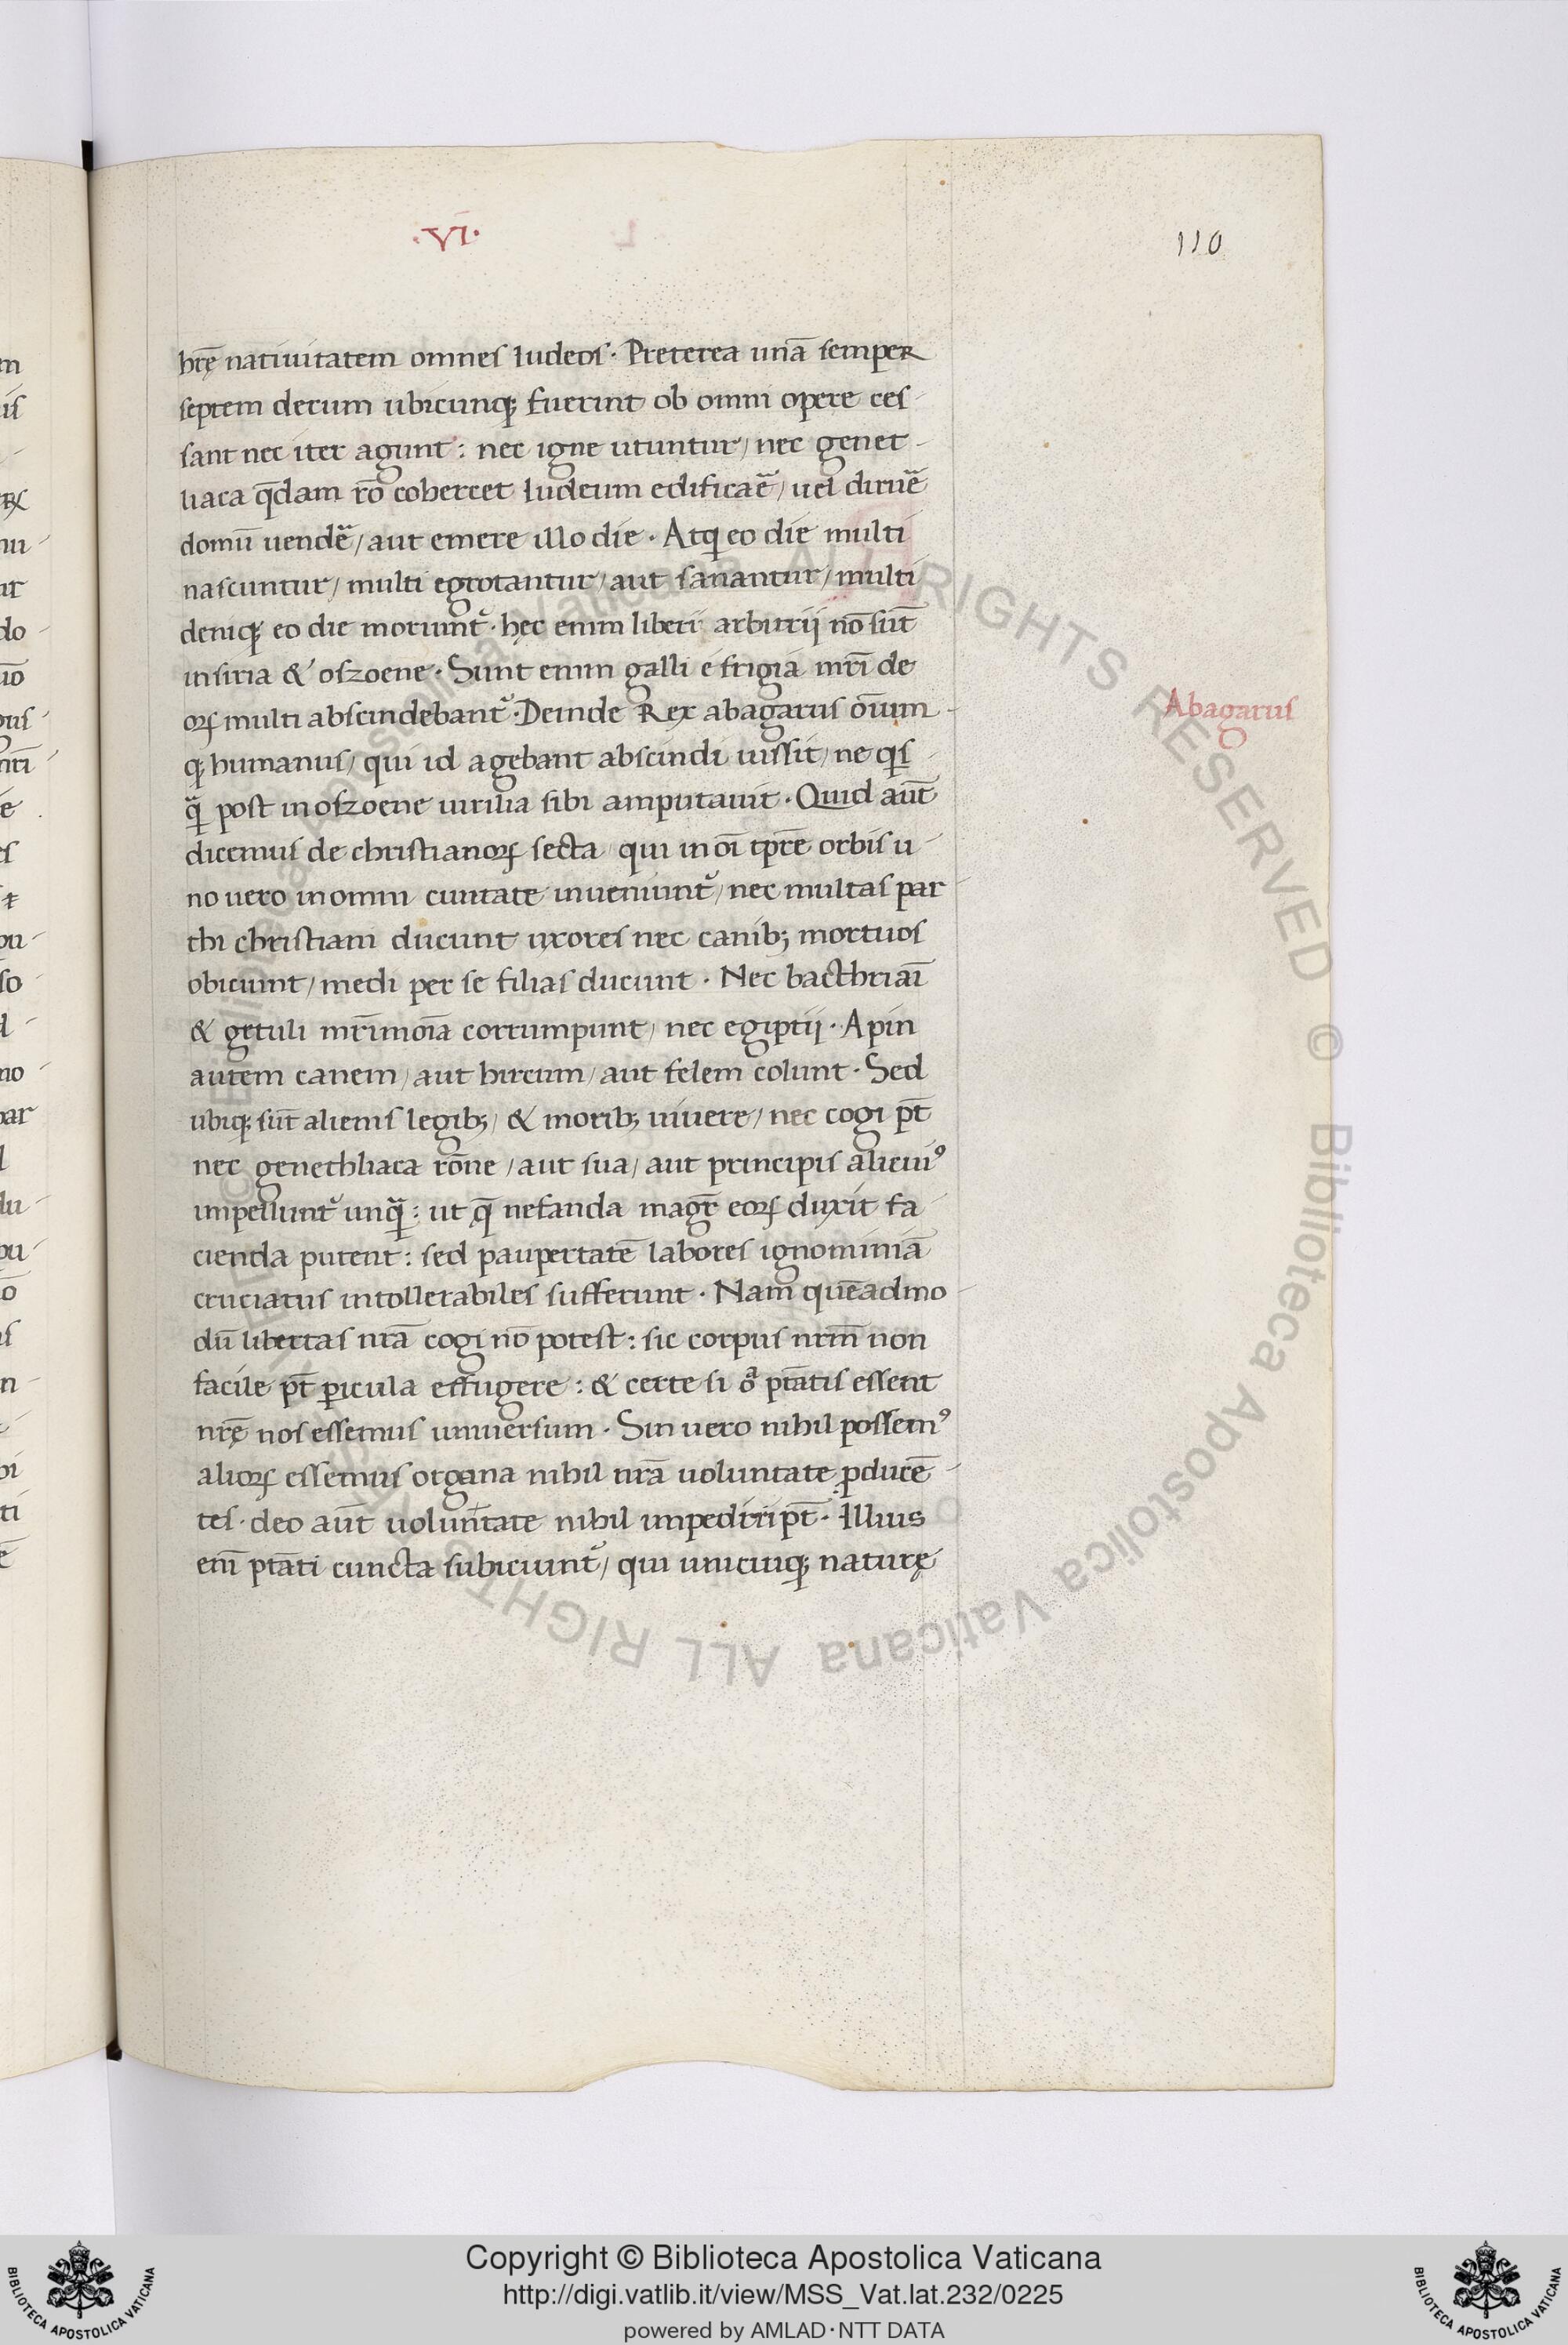 ·VI·
110
hrę natiuitatem omnes Iudeos · Preterea unā semper
septem dierum ubicunq; fuerint ob omni opere ces
sant nec iter agunt : nec igne utuntur / nec genet
liaca q̄dam rō cohercet Iudeum edificar̄e / uel diruer̄e
domū uender̄e / aut emere illo die · Atq; eo die multi
nascuntur / multi egrotantur / aut sanantur / multi
deniq; eo die moriunt̃ · hęc enim liberi arbitrij nō sūt
in siria & oszoene · Sunt enim galli e frigia mr̄i de
oꝝ multi abscindebant̃ · Deinde Rex abagarus oīum
q; humanus / qui id agebant abscindi iussit / ne q̨s
Abagarus
q̄ post in oszoene uirilia sibi amputauit · Quid aūt
dicemus de christianoꝝ secta qui in oī tp̄re orbis u
no uero in omni ciuitate inueniunt̃ / nec multas par
thi christiani ducunt uxores nec canib; mortuos
obiciunt / medi per se filias ducunt · Nec bacthriaī
& getuli mr̄imoīa corrumpunt / nec egiptij · Apin
autem canem / aut hircum / aut felem colunt · Sed
ubiq; sūt alienis legib; / & morib; uiuere / nec cogi pt̄
nec genethliaca rōne / aut sua / aut principis alicui⁹
impellunt̃ unq̄ : ut q̄ nefanda magr̄ eoꝝ duxit fa
cienda putent : sed paupertatē labores ignominiā
cruciatus intollerabiles sufferunt · Nam quēadmo
dū libertas nr̄a cogi nō potest : sic corpus nr̄m non
facile pt̄ ꝑicula effugere : & certe si oīa ptātis essent
nr̄ę nos essemus uniuersum · Sin uero nihil possem⁹
alioꝝ essemus organa nihil nr̄a uoluntate ꝓducē
tes · deo aūt uolun̄tate nihil impediri pt̄ · Illius
em̄ ptāti cuncta subiciunt̃ / qui unicuiq; naturę
Copyright © Biblioteca Apostolica Vaticana
http://digi.vatlib.it/view/MSS_Vat.lat.232/0225
powered by AMLAD·NTT DATA